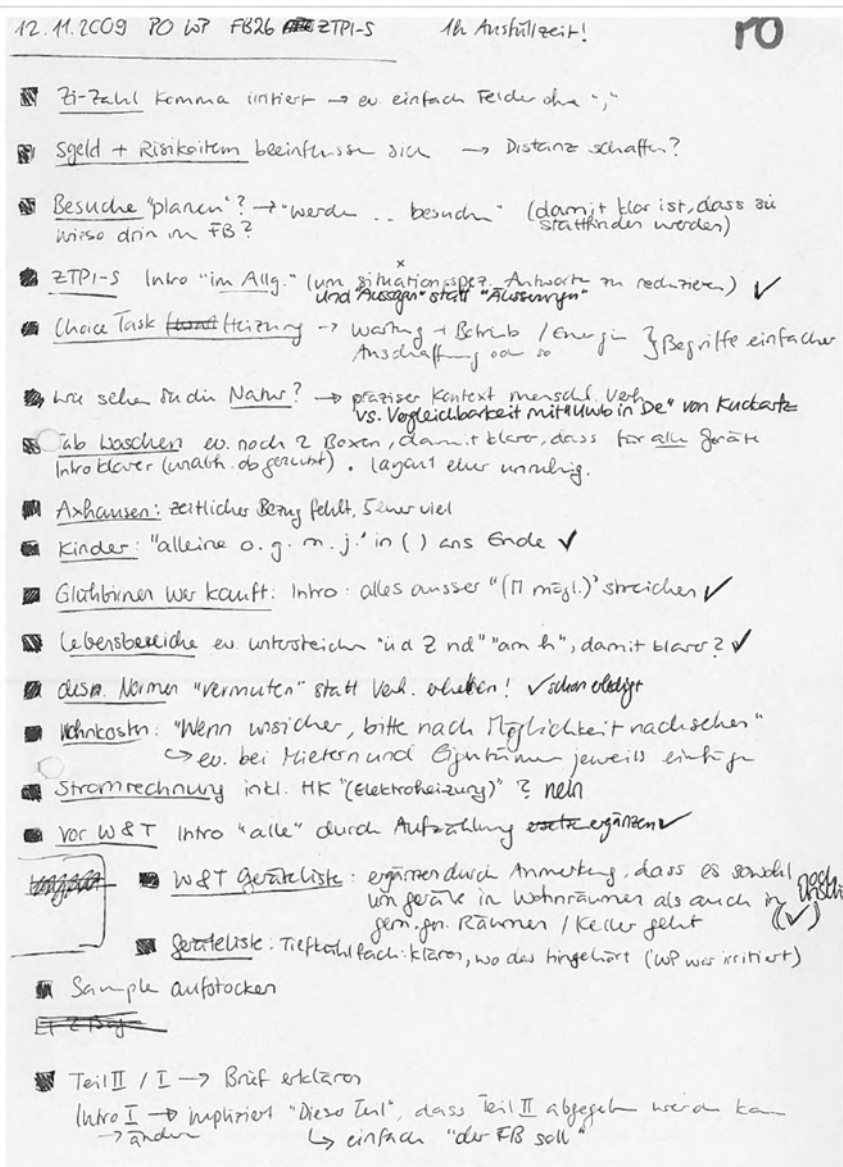 12.11.2009 PO WP FB26 ZTPI-S 1h Ausfüllzeit! PO
Zi-Zahl Komma irritiert → ev. einfach Felder ohne ","
Sgeld + Risikoitem beeinflussen sich → Distanz schaffen?
Besuche "planen"? → "werden .. besuchen" (damit klar ist, dass sie
wieso drin im FB? stattfinden werden)
ZTPI-S Intro "im Allg." (um situationsspez. Antworten zu reduzieren) ✓
und "Aussagen" statt "Äusserungen"
Choice Task Heizung → Wartung + Betrieb / Energie } Begriffe einfacher
Anschaffung oder so
Wie sehen Sie die Natur? → präziser Kontext menschl. Verh.
vs. Vergleichbarkeit mit "Umb in De" von Kuckartz
Tab Waschen ev. noch 2 Boxen, damit klarer, dass für alle Geräte
Intro klarer (unabh. ob genutzt). Layout eher unruhig.
Axhausen: zeitlicher Bezug fehlt, 5 eher viel
Kinder: "alleine o. g. m. j." in ( ) ans Ende ✓
Glühbirnen wer kauft: Intro: alles ausser "(M mögl.)" streichen ✓
Lebensbereiche ev. unterstreichen "ü d Z nd" "am h", damit klarer? ✓
desk. Normen "vermuten" statt Verh. erheben! ✓ schon erledigt
Wohnkosten: "Wenn unsicher, bitte nach Möglichkeit nachsehen"
↳ ev. bei Mietern und Eigentümern jeweils einfügen
Stromrechnung inkl. HK "(Elektroheizung)" ? nein
Vor W & T Intro "alle" durch Aufzählung ergänzen ✓
W & T Geräteliste: ergänzen durch Anmerkung, dass es sowohl noch
um Geräte in Wohnräumen als auch in
gem. gen. Räumen / Keller geht (✓)
Geräteliste: Tiefkühlfach: klären, wo das hingehört (WP war irritiert)
Sample aufstocken
Teil II / I → Brief erklären
Intro I → impliziert "Dieser Teil", dass Teil II abgegeben werden kann
→ ändern ↳ einfach "der FB soll"